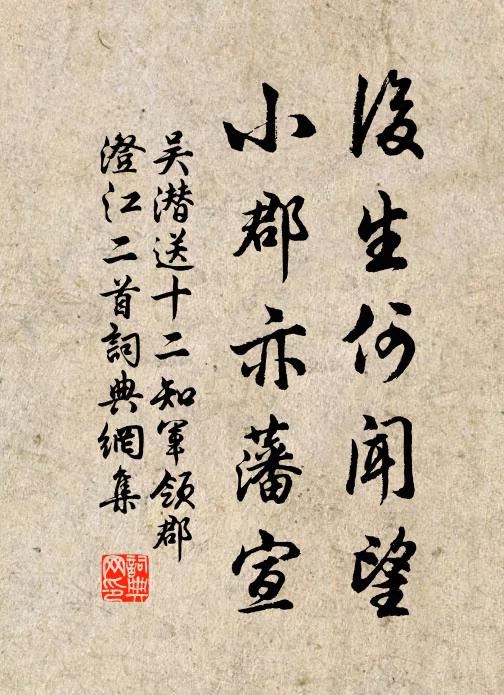 後生何聞望
小郡亦藩宣
吴潛送十二知軍領郡
澄江二首詞典網集
詞典
网印